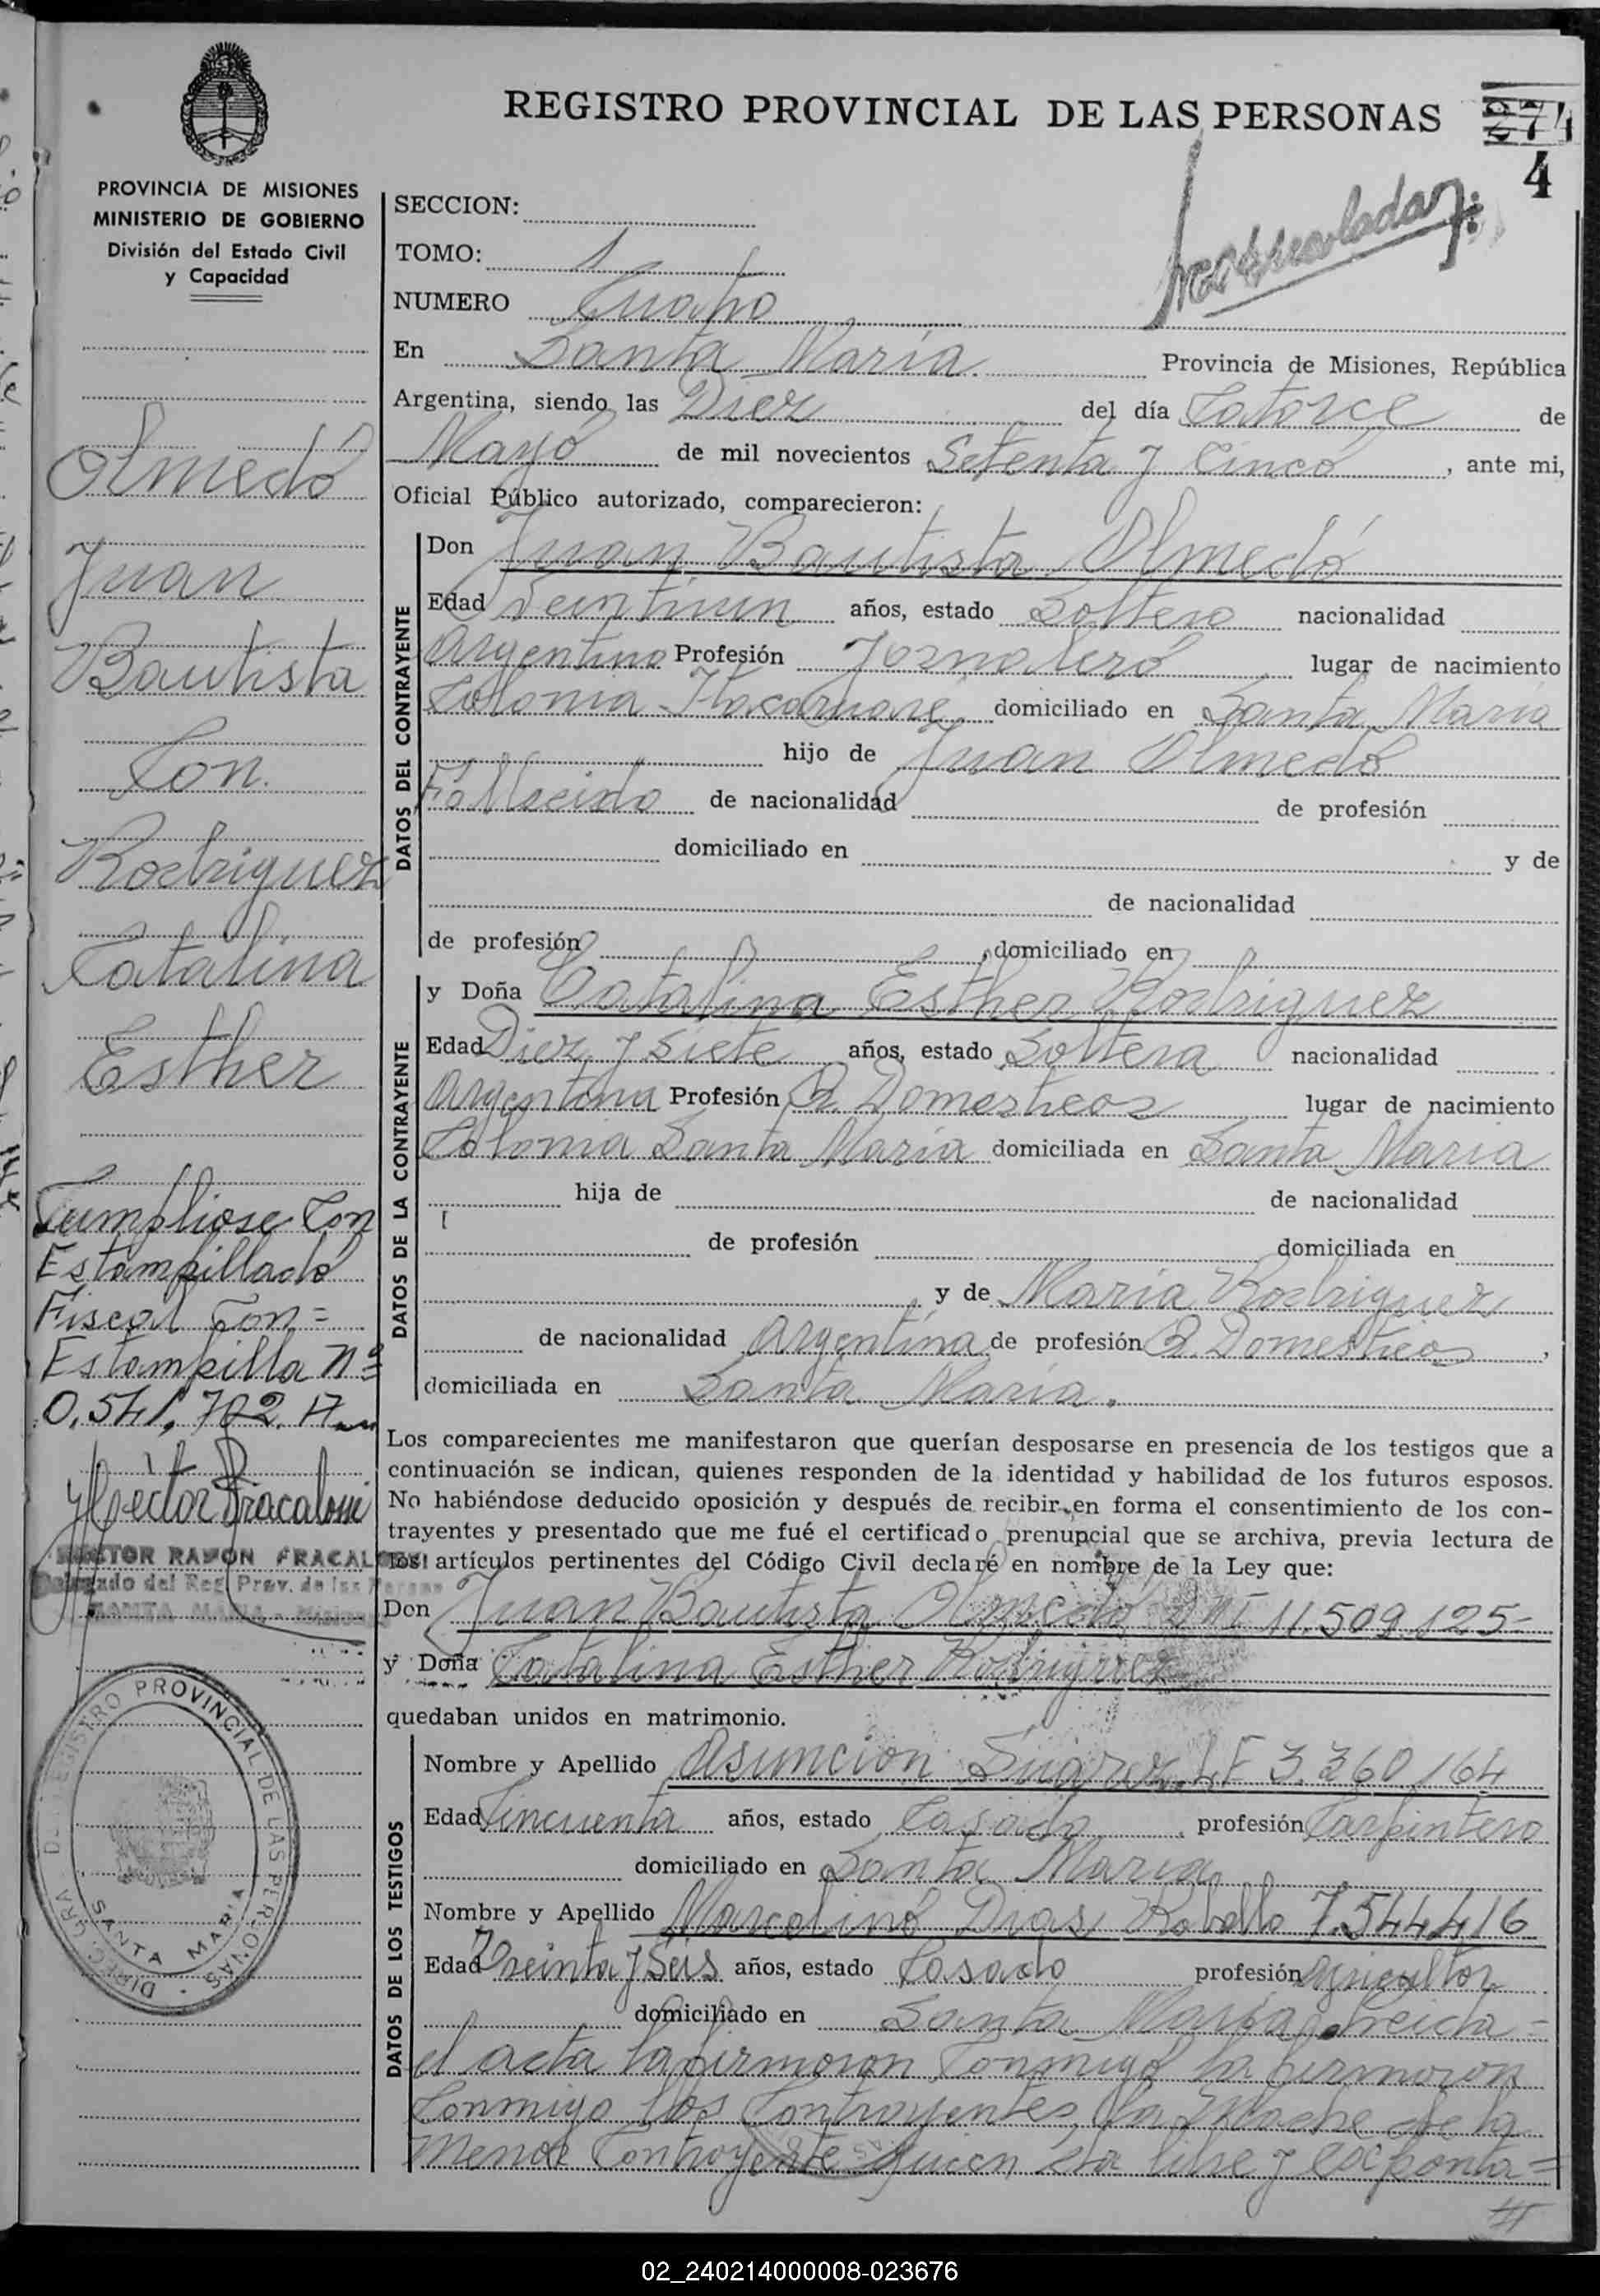 REGISTRO PROVINCIAL DE LAS PERSONAS
274
4
PROVINCIA DE MISIONES
MINISTERIO DE GOBIERNO
División del Estado Civil
y Capacidad
SECCION:
TOMO: 1
NUMERO Cuatro
En Santa María. Provincia de Misiones, República
Argentina, siendo las Diez del día Catorce de
Mayó de mil novecientos Setenta y Cincó, ante mi,
Oficial Público autorizado, comparecieron:
Olmedó
Juan
Bautista
Con.
Rodriguez
Catalina
Esther
Cumpliose Con
Estampilladó
Fiscal Con=
Estampilla Nº
0,541,702.A
Hector Fracalossi
HECTOR RAMON FRACALOSSI
Delegado del Reg. Prov. de las Personas
SANTA MARIA - Misiones
DIREC. GRAL. DEL REGISTRO PROVINCIAL DE LAS PERSONAS
SANTA MARIA
DATOS DEL CONTRAYENTE
Don Juan Bautista Olmedó
Edad Veintiun años, estado Soltero nacionalidad
Argentino Profesión Jornaleró lugar de nacimiento
Colonia Itacaruaré, domiciliado en Santa María
hijo de Juan Olmedó
Fallecido de nacionalidad de profesión
domiciliado en y de
de nacionalidad
de profesión domiciliado en
DATOS DE LA CONTRAYENTE
y Doña Catalina Esther Rodriguez
Edad Diez y Siete años, estado Soltera nacionalidad
Argentina Profesión Q. Domesticos lugar de nacimiento
Colonia Santa María domiciliada en Santa Maria
hija de de nacionalidad
de profesión domiciliada en
y de María Rodriguez
de nacionalidad Argentina de profesión Q. Domesticos,
domiciliada en Santa María.
Los comparecientes me manifestaron que querían desposarse en presencia de los testigos que a
continuación se indican, quienes responden de la identidad y habilidad de los futuros esposos.
No habiéndose deducido oposición y después de recibir en forma el consentimiento de los con-
trayentes y presentado que me fué el certificado prenupcial que se archiva, previa lectura de
los artículos pertinentes del Código Civil declaré en nombre de la Ley que:
Don Juan Bautista Olmedó DNI 11.509.125-
y Doña Catalina Esther Rodriguez
quedaban unidos en matrimonio.
DATOS DE LOS TESTIGOS
Nombre y Apellido Asuncion Suarez LE 3.360,164
Edad Cincuenta años, estado Casado, profesión Carpintero
domiciliado en Santa Maria
Nombre y Apellido Marcelinó Dias Raballo 7.544.416
Edad Treinta y Seis años, estado Casado profesión Agricultor
domiciliado en Santa María, Leida=
el acta la firmaron Conmigo la firmaron
Conmigo los Contrayentes, la Madre de la
menor Contrayente quien da libre y exponta=
02_240214000008-023676